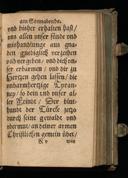 am Sonnabende.
und bißher erhalten hast/
uns allen unser sünde und
mishandlunge aus gna-
den gnediglich verzeihen
und vergeben / und dich un-
ser erbarmen / und dir zu
Hertzen gehen lassen / die
unbarmhertzige Tyran-
ney / so dein und unser al-
ler Feindt / Der blut-
hundt der Türcke jetzt
durch seine gewalt und
obermut / an deiner armen
Christlichen gemein übet/
K v